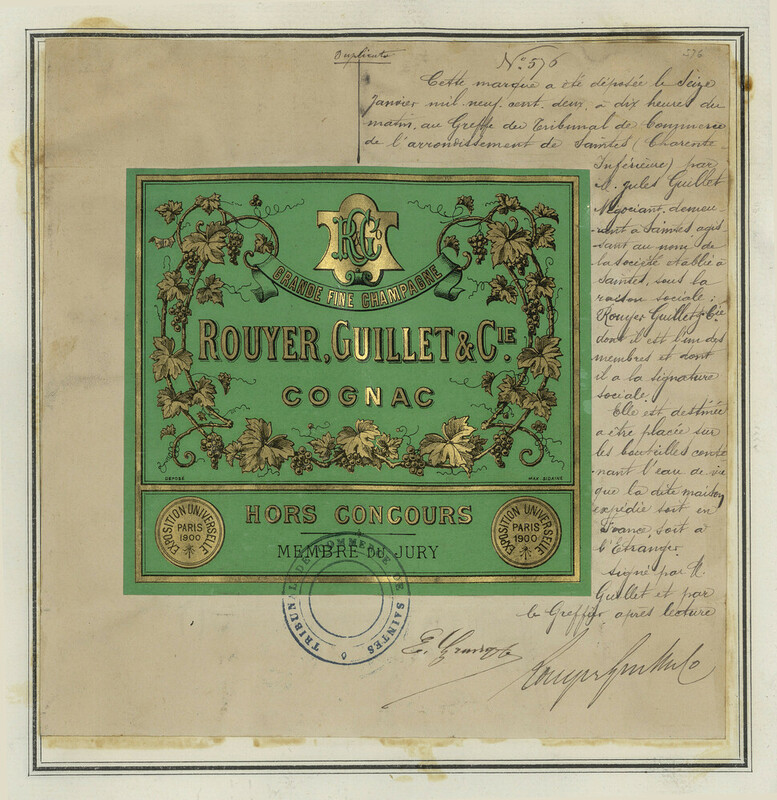 Duplicata
N° 576
576
Cette marque a été déposée le Seize
Janvier mil neuf cent deux, à dix heures du
matin, au Greffe du Tribunal de Commerce
de l'arrondissement de Saintes (Charente
Inférieure) par
M. Jules Guillet
Négociant, demeu-
rant à Saintes agis
sant au nom de
la société établie à
Saintes, sous la
raison sociale:
Rouyer Guillet & Cie
dont il est l'un des
membres et dont
il a la signature
sociale.
Elle est destinée
a être placée sur
les bouteilles conte
nant l'eau de vie
que la dite maison
expédie soit en
France, soit à
l'Etranger.
signé par M.
Guillet et par
le Greffier, après lecture
RG
GRANDE FINE CHAMPAGNE
ROUYER, GUILLET & CIE.
COGNAC
DÉPOSÉ
HORS CONCOURS
MEMBRE DU JURY
EXPOSITION UNIVERSELLE
PARIS
1900
EXPOSITION UNIVERSELLE
PARIS
1900
TRIBUNAL DE COMMERCE DE SAINTES
Rouyer Guillet & Co